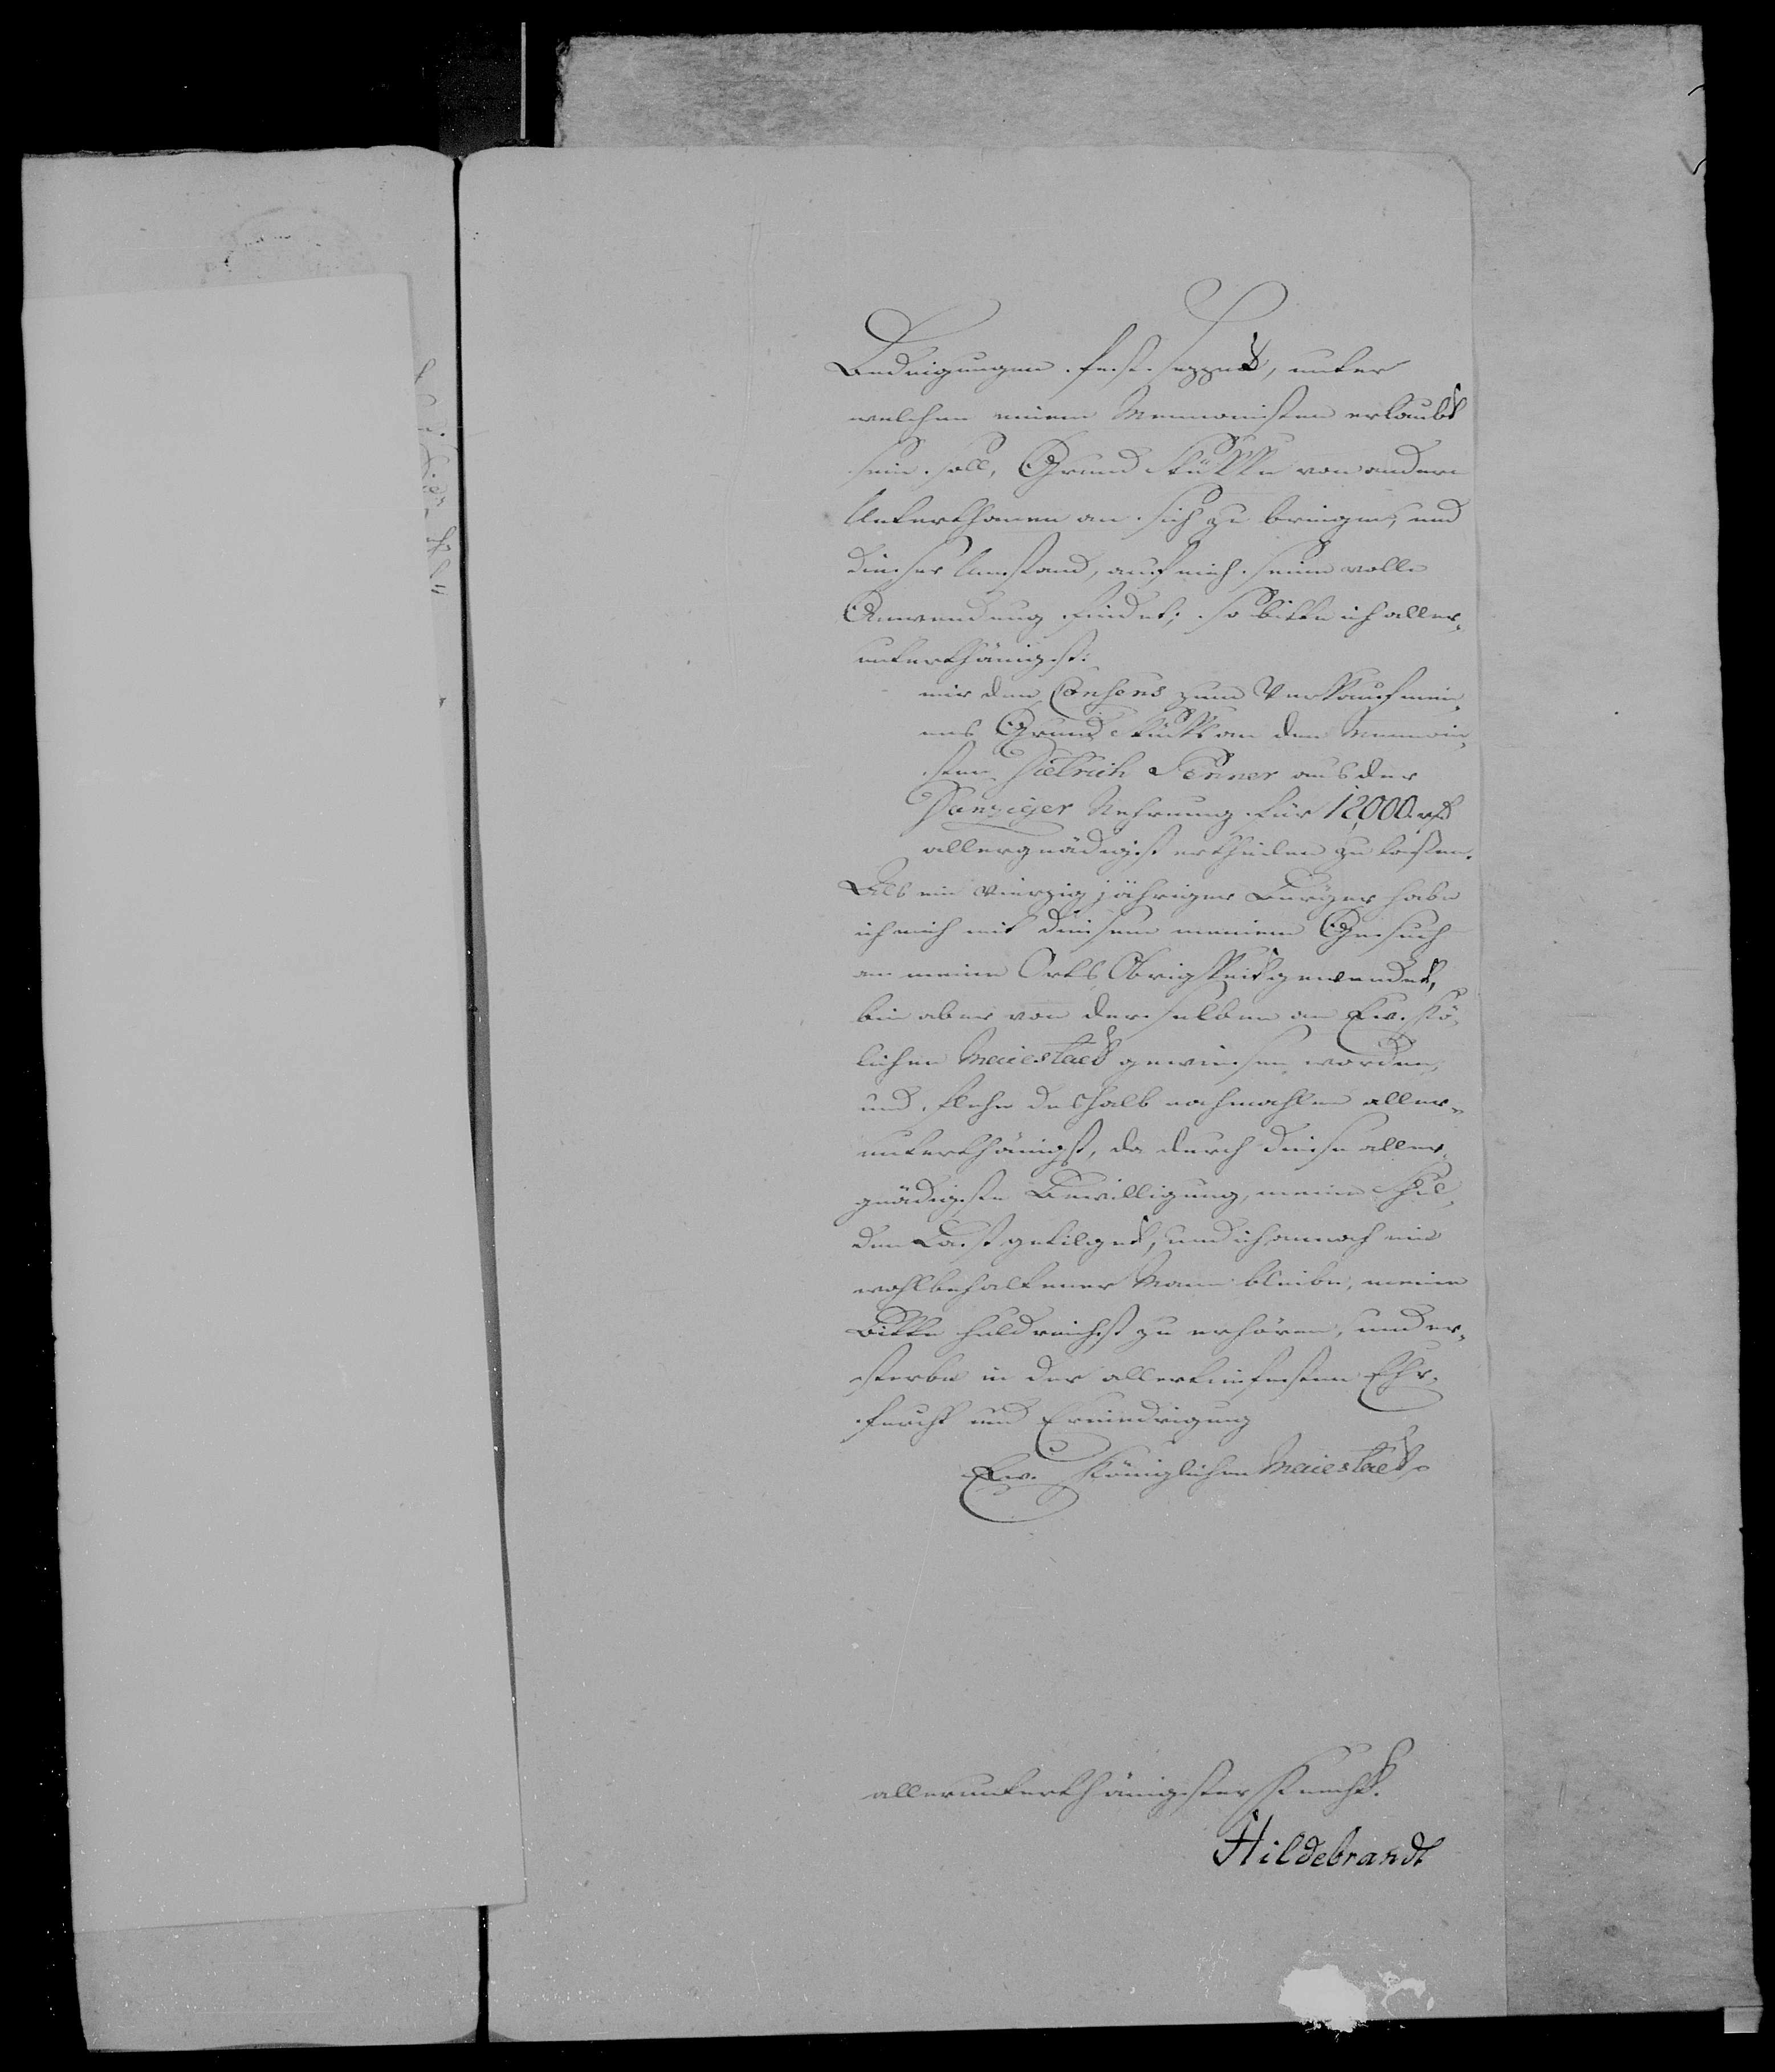 Bedingungen fest sezzet, unter
welchen einem Mennonisten erlaubt
sein soll, Grund Stükke von andern
Unterthanen an sich zu bringen, und
dieser Umstand, auf mich seine volle
Anwendung findet; so bitte ich aller„
unterthänigst:
mir den Consens zum Verkauf mei„
nes Grund Stücks an den Mennoni„
sten Dietrich Penner aus der
Danziger Nehrung für 12,000 rth
allergnädigst ertheilen zu lassen.
Als ein vierzig jähriger Bürger habe
ich mich mit diesem meinem Gesuch
an meine Orts Obrigkeit gewendet,
bin aber von derselben an Ew. Kö„
lichen Maiestaet gewiesen worden,
und flehe deshalb nochmahlen aller„
unterthänigst, da durch diese aller„
gnädigste Bewilligung, meine Schul„
den Last getilget, und ich annoch ein
wohlbehaltener Mann bleibe, meine
Bitte huldreichst zu erhören, und er„
sterbe in der allertiefesten Ehr„
furcht und Erniedrigung
Ew. Königlichen Maiestaet
allerunterthänigster Knecht.
Hildebrandt